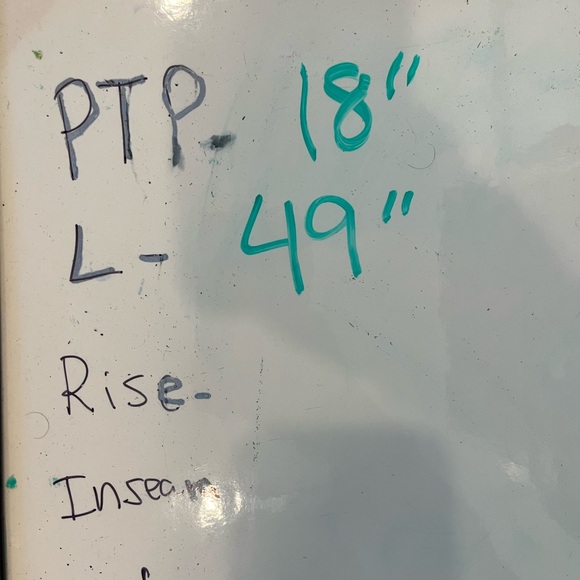 PTP- 18"
L- 49"
Rise-
Inseam